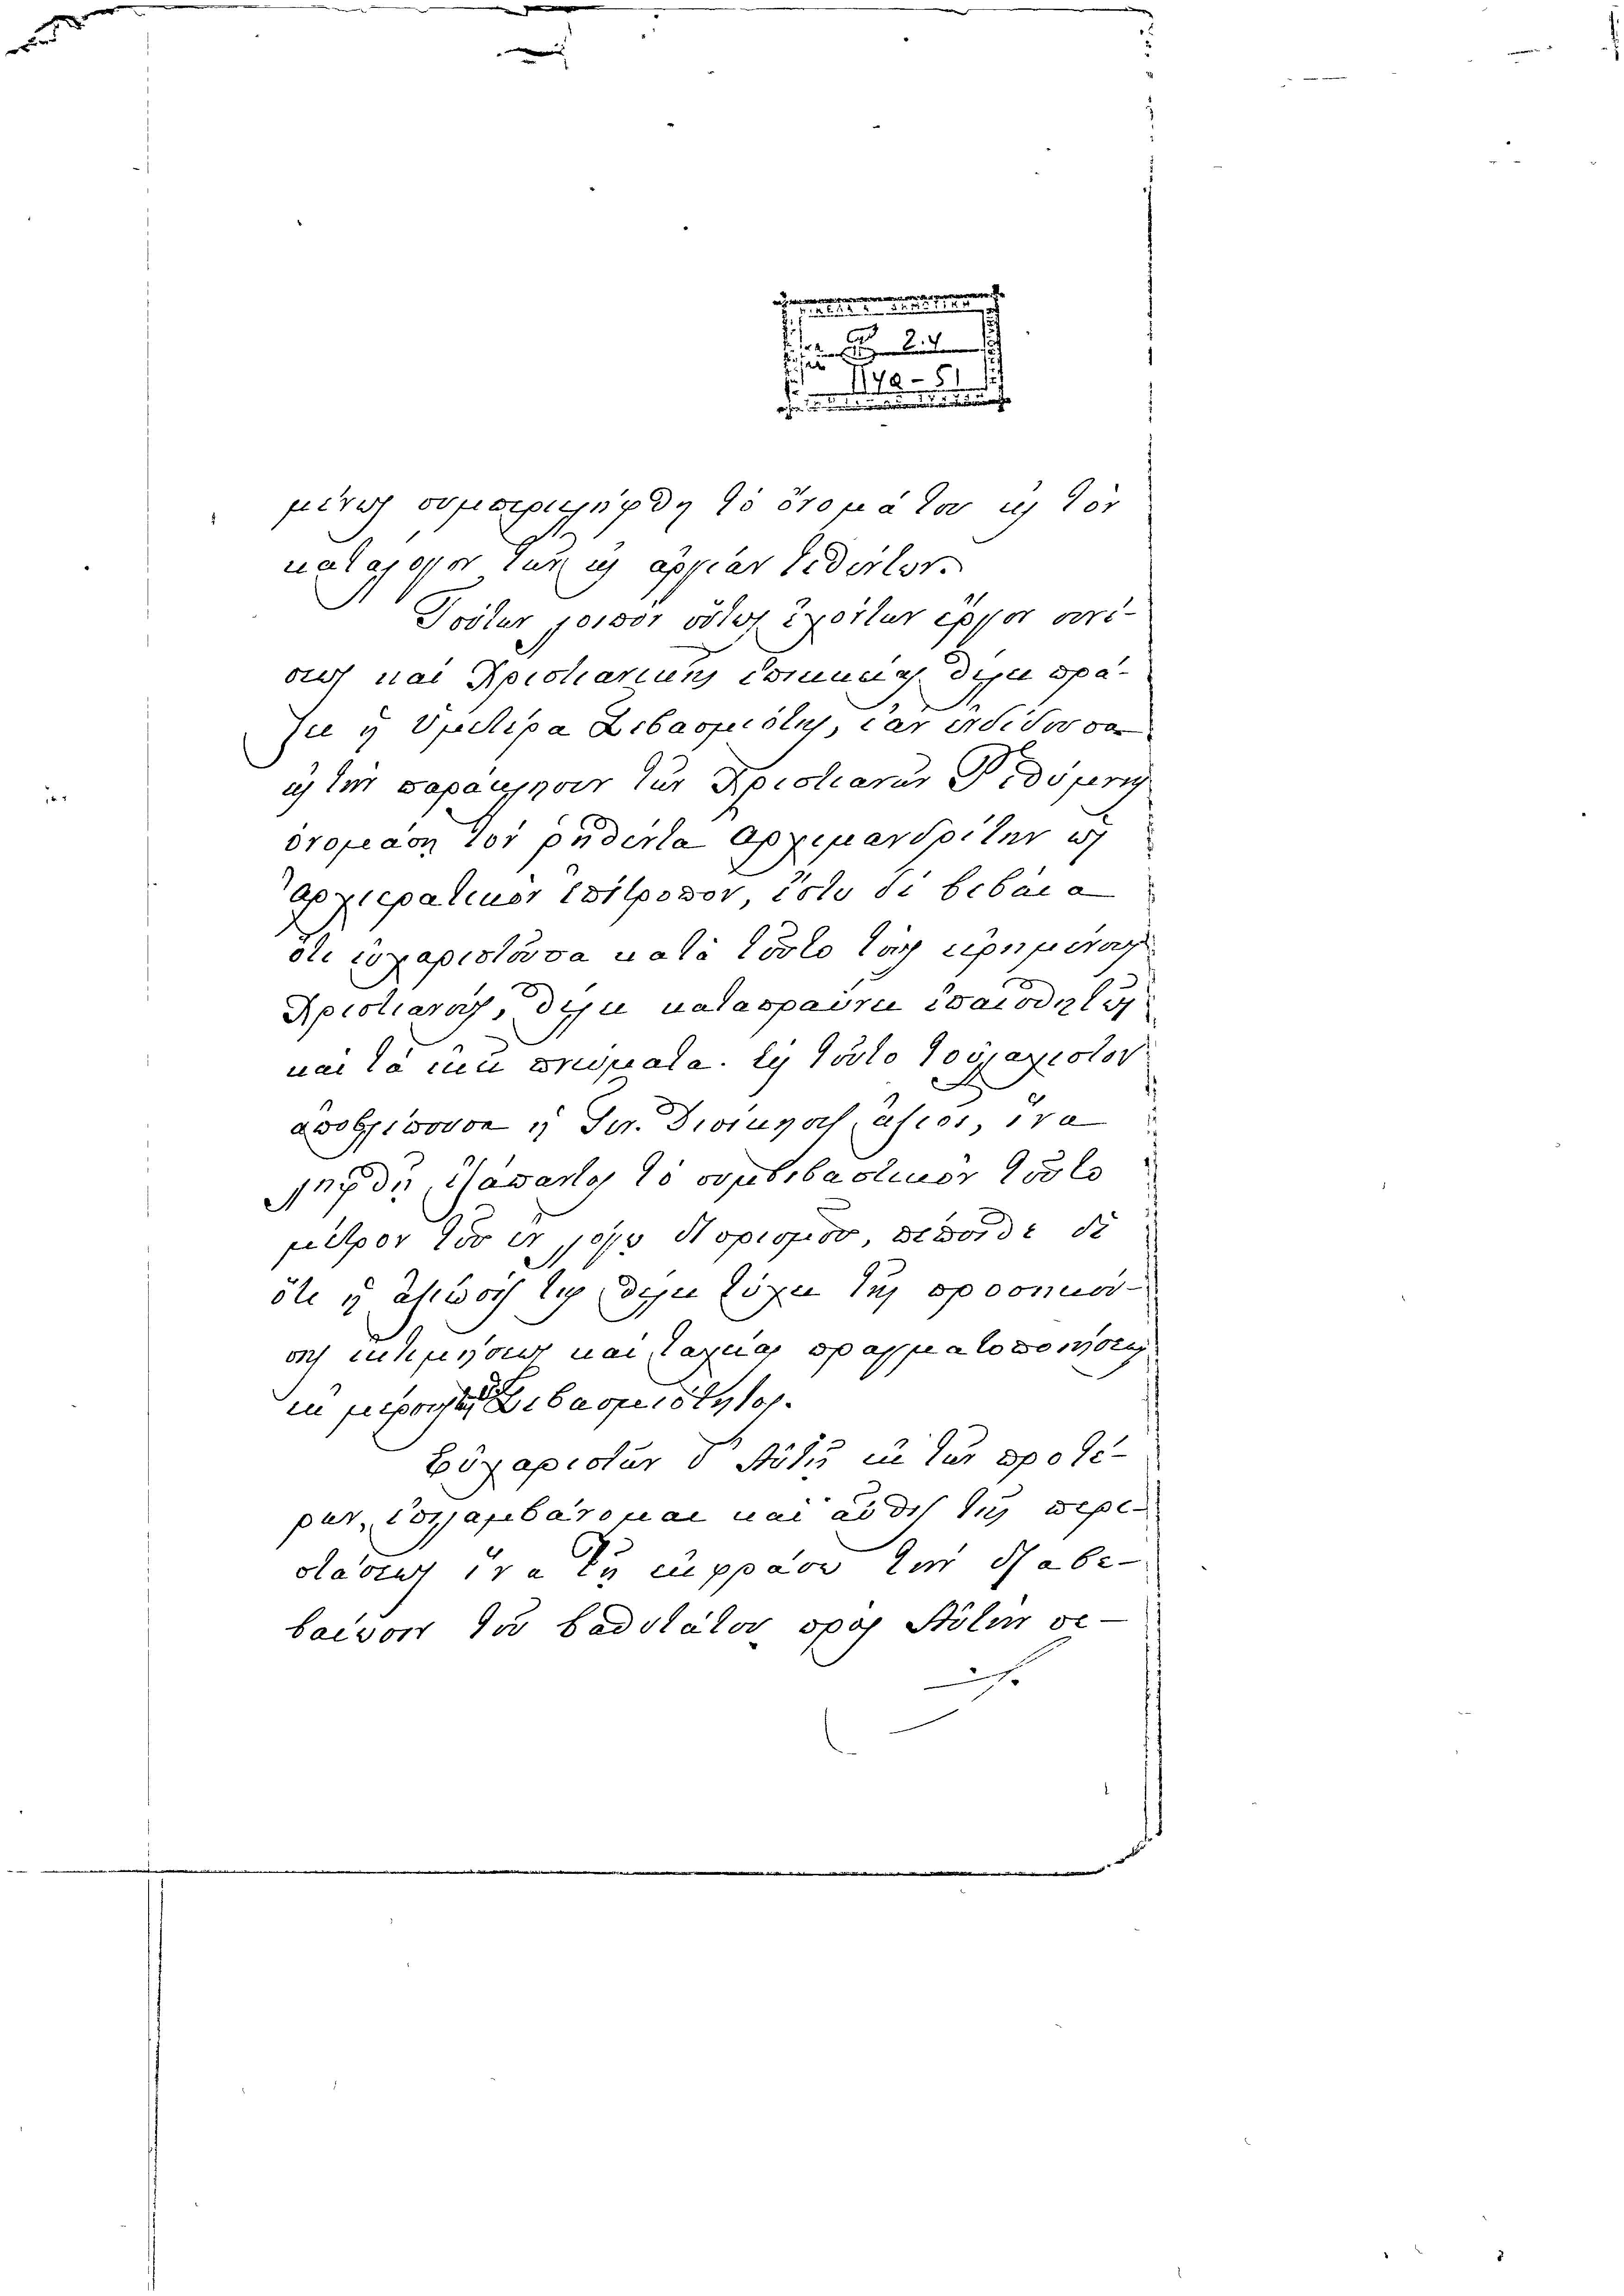 24
1149-51
μένως συμπεριελήφθη τὸ ὄνομά του εἰς τὸν
κατάλογον τῶν εἰς ἀργίαν τεθέντων.
Τούτων λοιπὸν οὕτως ἐχόντων ἔργον συνέ-
σεως καὶ Χριστιανικῆς ἐπιεικείας θέλει πρά-
ξει ἡ Ὑμετέρα Σεβασμιότης, ἐὰν ἐνδίδουσα
εἰς τὴν παράκλησιν τῶν Χριστιανῶν Ῥεθύμνης
ὀνομάσῃ τὸν ῥηθέντα Ἀρχιμανδρίτην ὡς
Ἀρχιερατικὸν ἐπίτροπον, ἔστω δὲ βεβαία
ὅτι εὐχαριστοῦσα κατὰ τοῦτο τοὺς εἰρημένους
Χριστιανούς, θέλει καταπραΰνει ἐπαισθητῶς
καὶ τὰ ἐκεῖ πνεύματα. Εἰς τοῦτο τοὐλάχιστον
ἀποβλέπουσα ἡ Γεν. Διοίκησις ἀξιοῖ, ἵνα
ληφθῇ ἐξάπαντος τὸ συμβιβαστικὸν τοῦτο
μέτρον τοῦ ἐν λόγῳ διορισμοῦ, πέποιθε δὲ
ὅτι ἡ ἀξίωσίς της θέλει τύχει τῆς προσηκού-
σης ἐκτιμήσεως καὶ ταχείας πραγματοποιήσεως
ἐκ μέρους τῆς Σεβασμιότητος.
Εὐχαριστῶν δ' Αὐτῇ ἐκ τῶν προτέ-
ρων, ἐπιλαμβάνομαι καὶ αὖθις τῆς περι-
στάσεως ἵνα τῇ ἐκφράσω τὴν διαβε-
βαίωσιν τοῦ βαθυτάτου πρὸς Αὐτὴν σε-